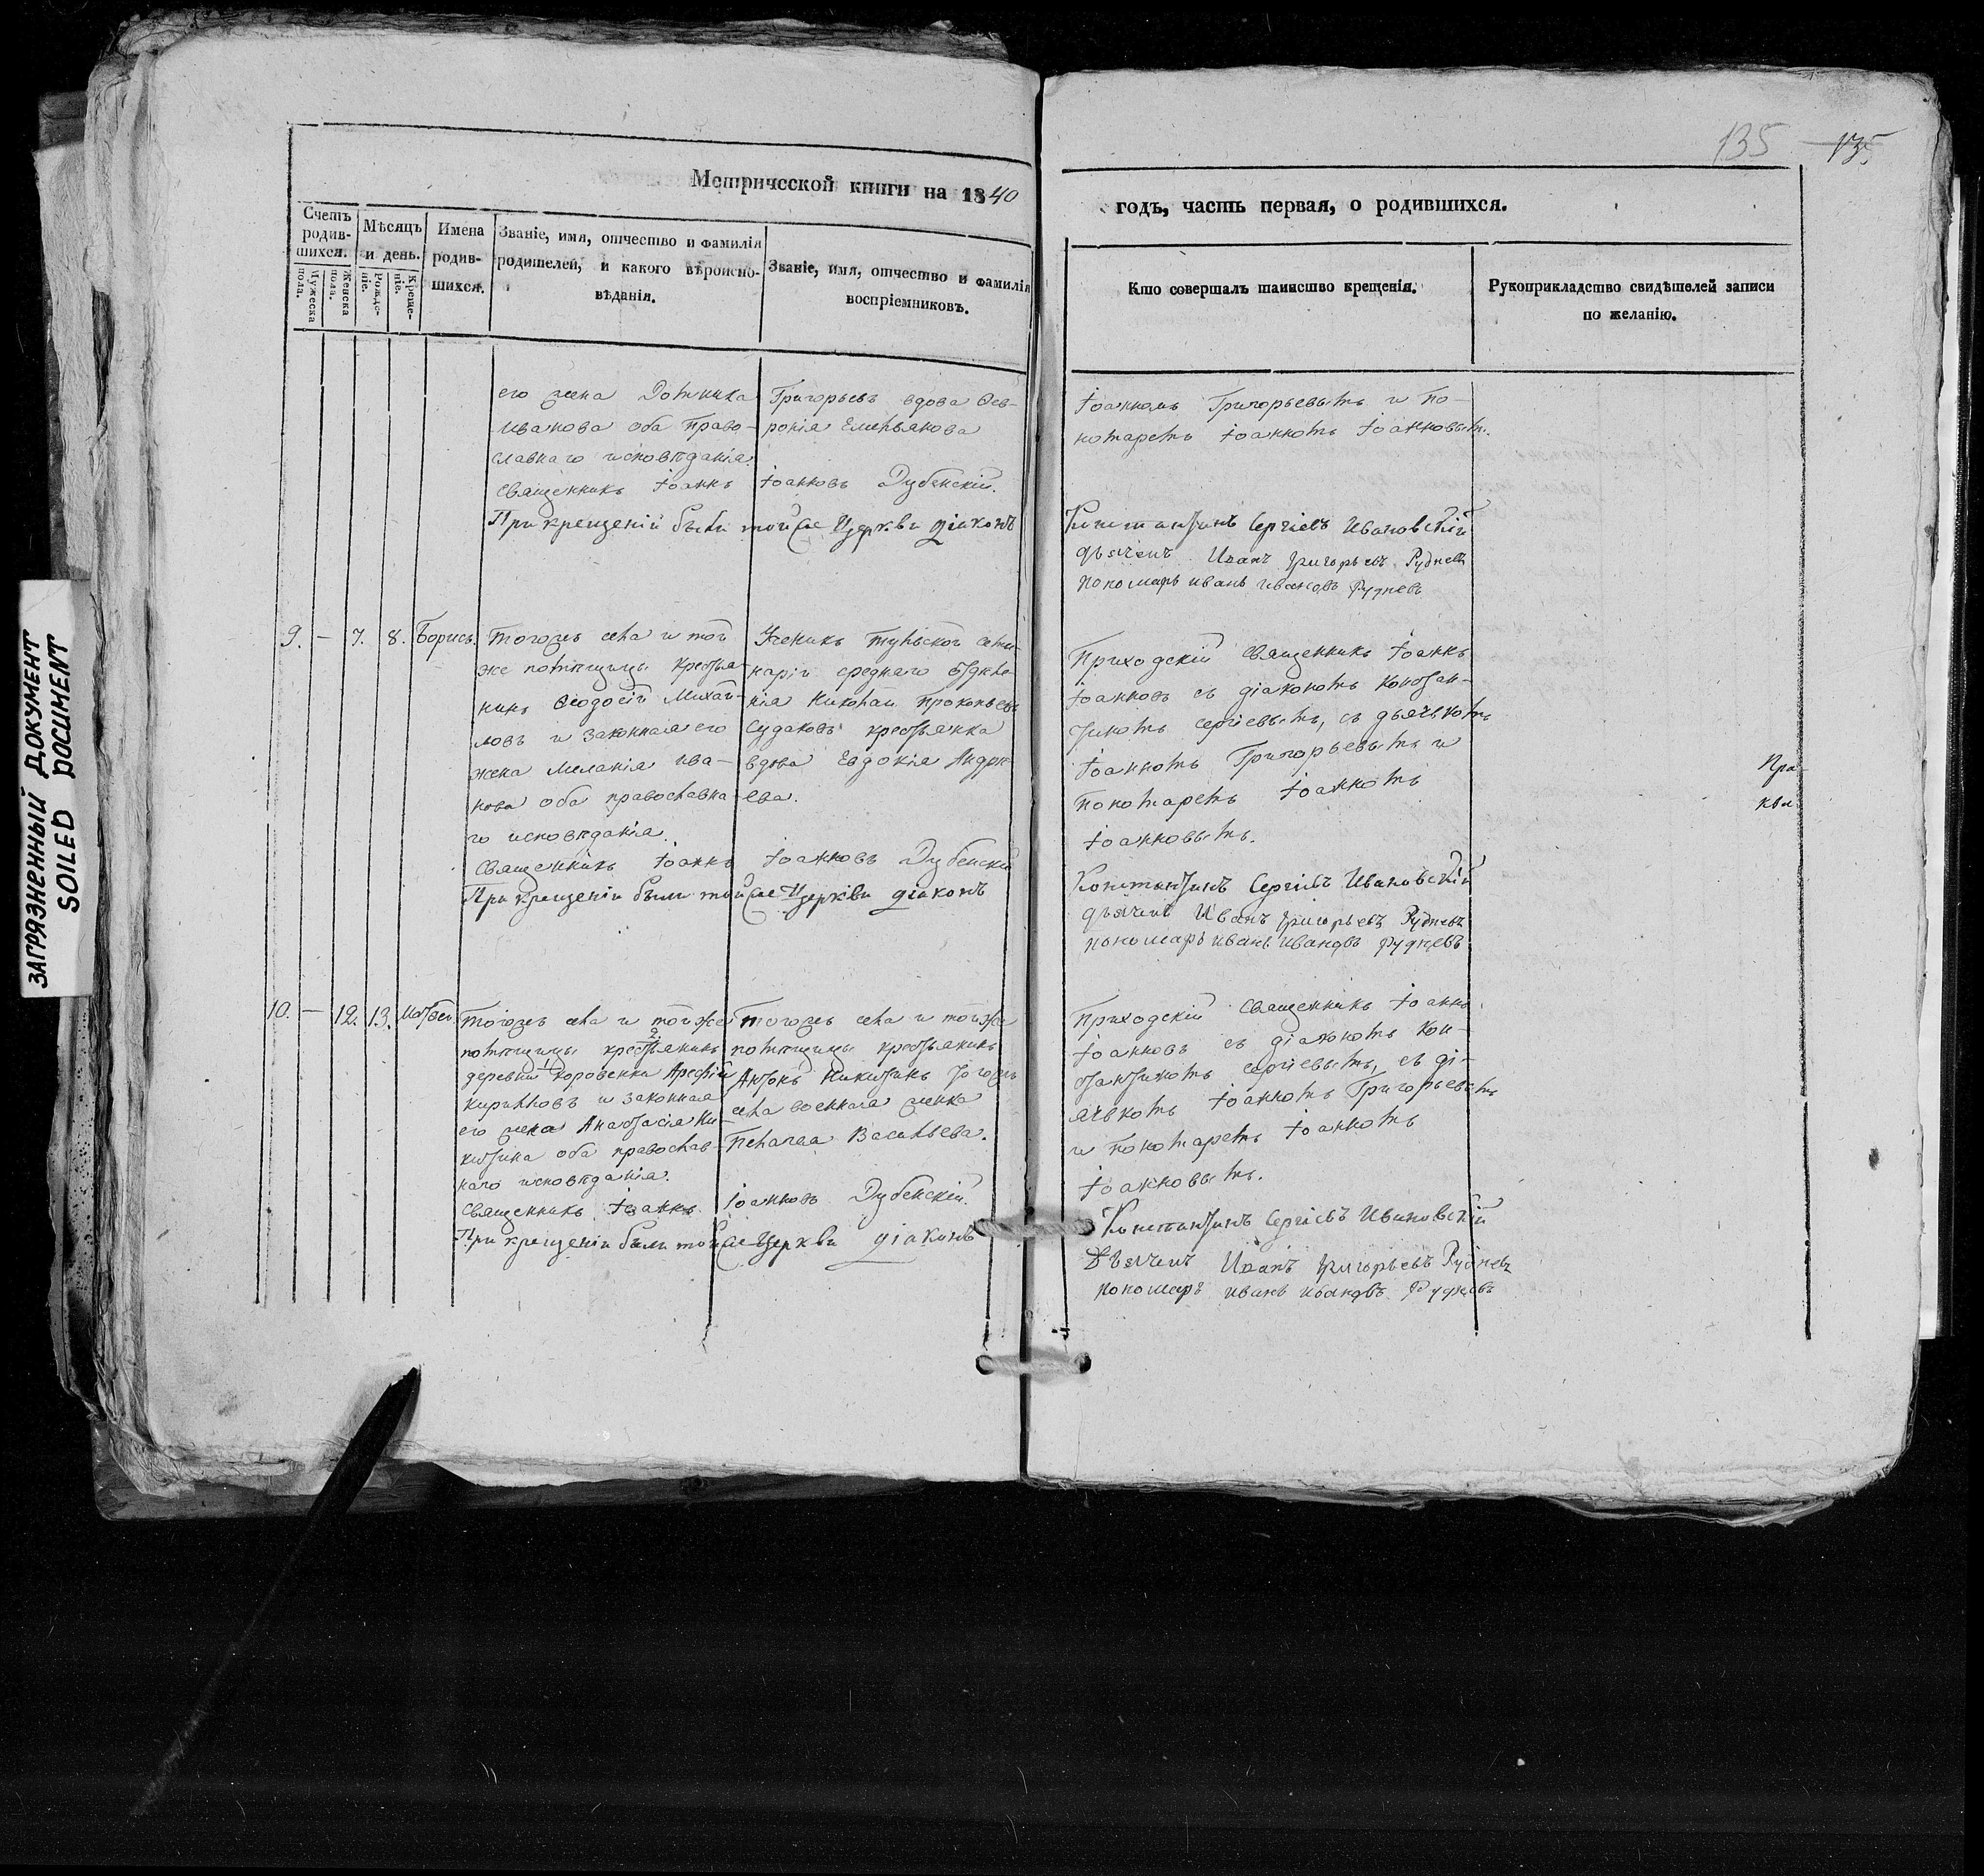 135
Метрической книги на 1840
годъ, часть первая, о родившихся.
Счетъ родив-шихся.
Мужеска пола.
Женска пола.
Мѣсяцъ и день.
Рожде-ніе.
Креще-ніе.
Имена родив-шихся.
Званіе, имя, отчество и фамилія
родителей, и какого вѣроиспо-
вѣданія.
Званіе, имя, отчество и фамилія
воспріемниковъ.
Кто совершалъ таинство крещенія.
Рукоприкладство свидѣтелей записи
по желанію.
его жена Домника
Иванова оба Право-
славнаго исповѣданія.
Григорьевъ вдова Фев-
ронія Емельянова
Священникъ Іоаннъ Іоанновъ Дубенскій.
При крещеніи были той же Церкви діаконъ
Іоанномъ Григорьевымъ и По-
номаремъ Іоанномъ Іоанновымъ.
Константинъ Сергіевъ Ивановскій
дьячекъ Иванъ Григорьевъ Рудневъ
пономарь иванъ ивановъ Рудневъ
9. — 7. 8. Борисъ.
Тогожъ села и той
же помѣщицы крестья-
нинъ Ѳеодосій Михай-
ловъ и законная его
жена Меланія Ива-
нова оба православна-
го исповѣданія.
Ученикъ Тульской семи-
наріи средняго отдѣле-
нія Николай Прокопьевъ
Судаковъ крестьянка
вдова Евдокія Андре-
ева.
Священникъ Іоаннъ Іоанновъ Дубенскій
При крещеніи были той же Церкви діаконъ
Приходскій Священникъ Іоаннъ
Іоанновъ съ діакономъ Констан-
тиномъ Сергіевымъ, съ дьячкомъ
Іоанномъ Григорьевымъ и
Пономаремъ Іоанномъ
Іоанновымъ.
Константинъ Сергіевъ Ивановскій
дьячекъ Иванъ Григорьевъ Рудневъ
пономарь иванъ ивановъ Рудневъ
10. — 12. 13. Матвей.
Тогожъ села и той же
помѣщицы крестьянинъ
деревни Коровенки Арефій
Кириловъ и законная
его жена Анастасія Ни-
китина оба православ-
наго исповѣданія.
Тогожъ села и той же
помѣщицы крестьянинъ
Антонъ Никитинъ тогожъ
села военная женка
Пелагея Васильева.
Священникъ Іоаннъ Іоанновъ Дубенскій.
При крещеніи были той же Церкви діаконъ
Приходскій Священникъ Іоаннъ
Іоанновъ съ діакономъ Кон-
стантиномъ Сергіевымъ, съ дь-
ячкомъ Іоанномъ Григорьевымъ
и Пономаремъ Іоанномъ
Іоанновымъ.
Константинъ Сергіевъ Ивановскій
Дьячекъ Иванъ Григорьевъ Рудневъ
пономарь иванъ ивановъ Рудневъ
ЗАГРЯЗНЕННЫЙ ДОКУМЕНТ
SOILED DOCUMENT